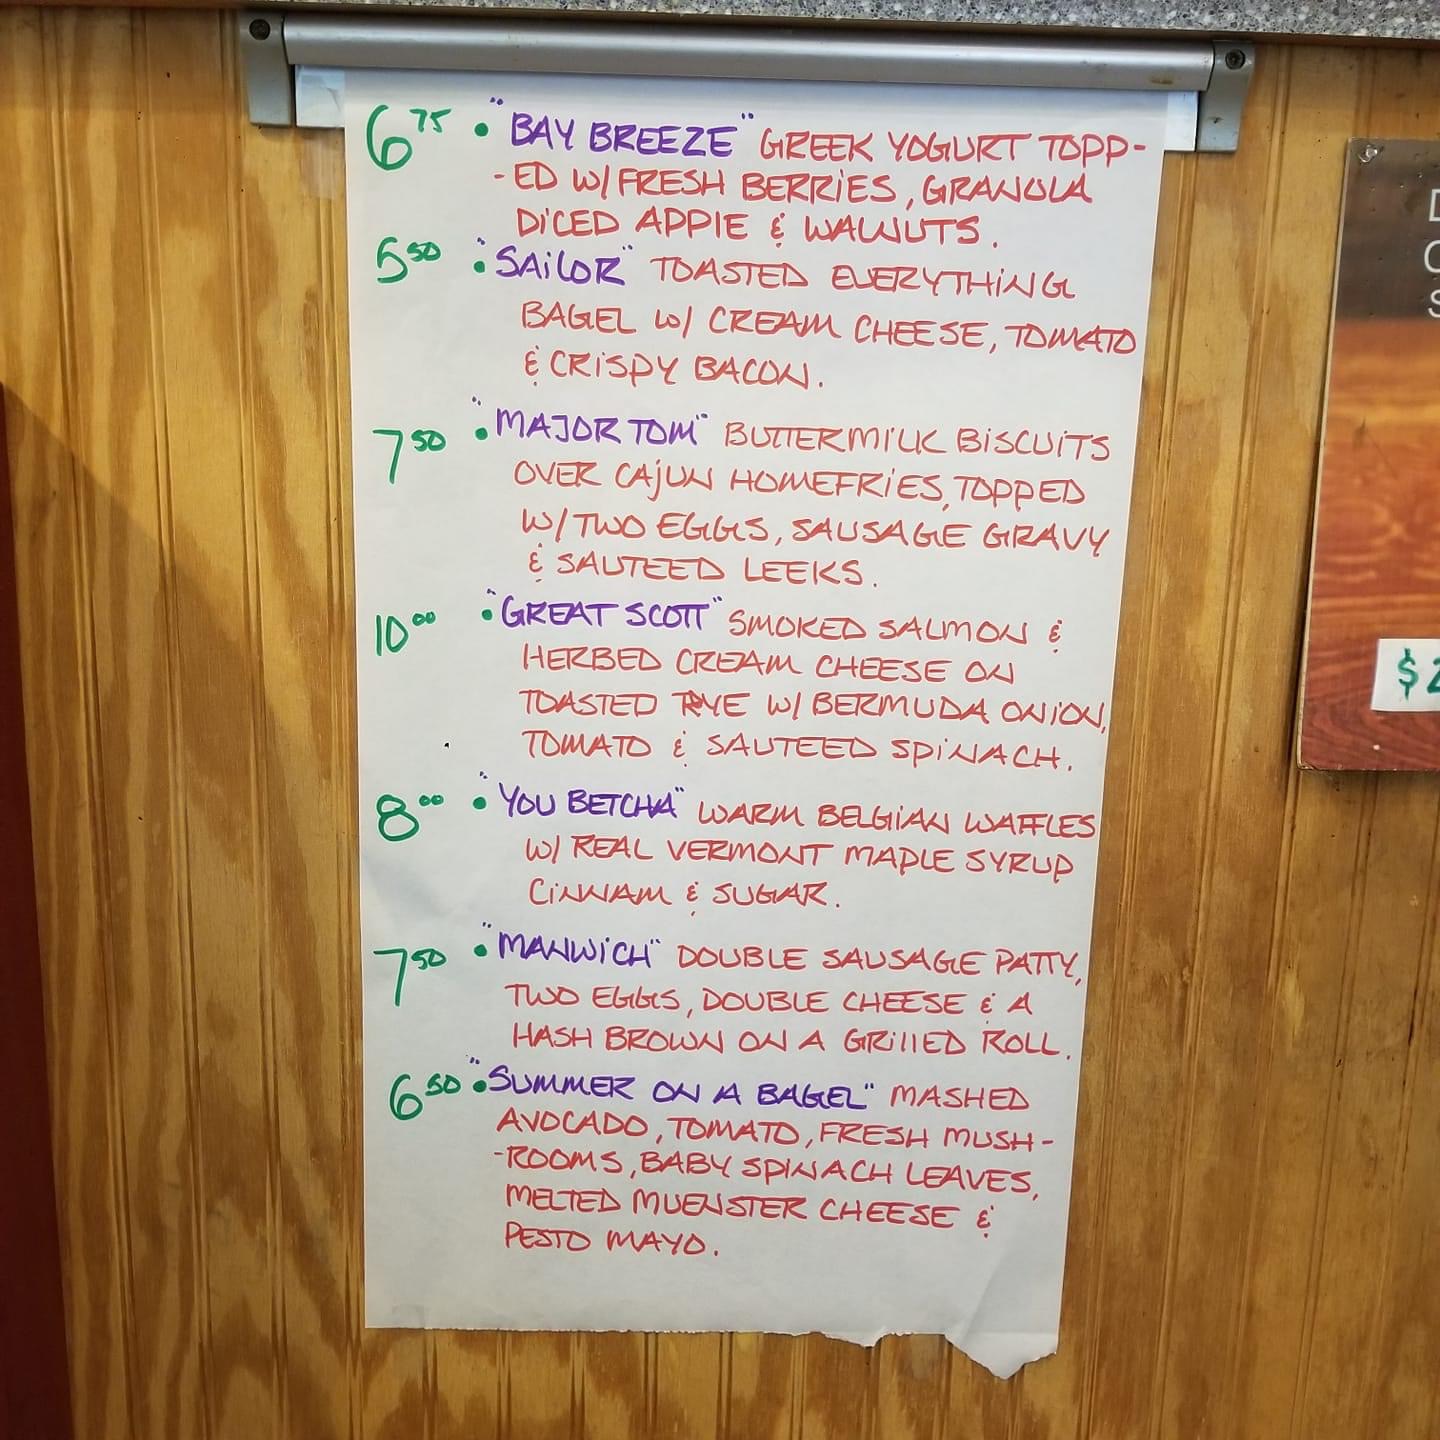 6.75 • "BAY BREEZE" GREEK YOGURT TOPP-
-ED W/ FRESH BERRIES, GRANOLA
DICED APPLE & WALNUTS.
5.50 • "SAILOR" TOASTED EVERYTHING
BAGEL W/ CREAM CHEESE, TOMATO
& CRISPY BACON.
7.50 • "MAJOR TOM" BUTTERMILK BISCUITS
OVER CAJUN HOMEFRIES, TOPPED
W/ TWO EGGS, SAUSAGE GRAVY
& SAUTEED LEEKS.
10.00 • "GREAT SCOTT" SMOKED SALMON &
HERBED CREAM CHEESE ON
TOASTED RYE W/ BERMUDA ONION,
TOMATO & SAUTEED SPINACH.
8.00 • "YOU BETCHA" WARM BELGIAN WAFFLES
W/ REAL VERMONT MAPLE SYRUP
CINNAM & SUGAR.
7.50 • "MANWICH" DOUBLE SAUSAGE PATTY,
TWO EGGS, DOUBLE CHEESE & A
HASH BROWN ON A GRILLED ROLL.
6.50 • "SUMMER ON A BAGEL" MASHED
AVOCADO, TOMATO, FRESH MUSH-
-ROOMS, BABY SPINACH LEAVES,
MELTED MUENSTER CHEESE &
PESTO MAYO.
$2